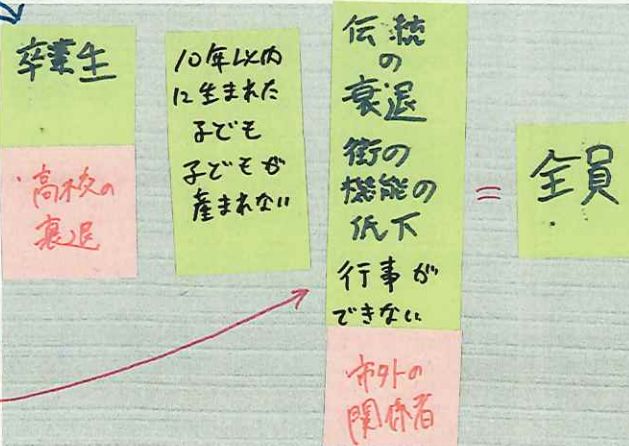 卒業生
高校の
衰退
10年以内
に生まれた
子ども
子どもが
産まれない
伝統
の
衰退
街の
機能の
低下
行事が
できない
市外の
関係者
=
全員